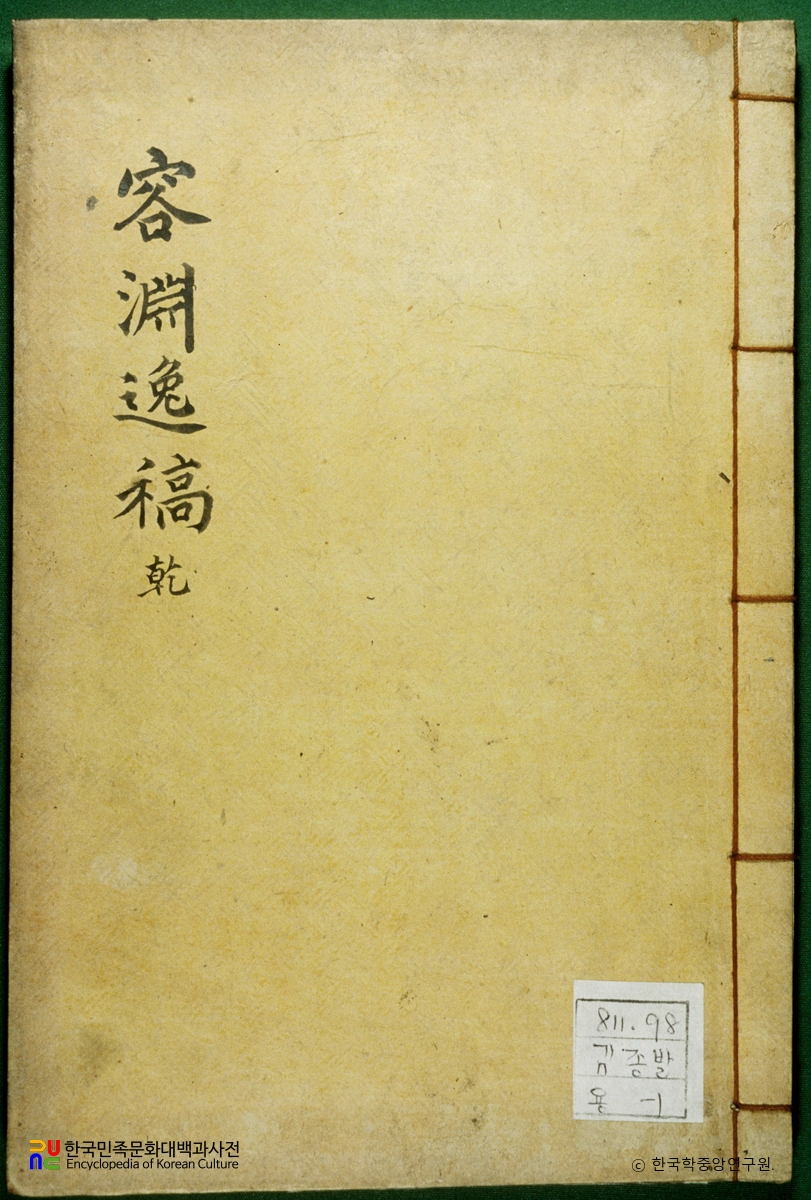 容淵逸稿 乾
811.98
김종발
용 -1
한국민족문화대백과사전
Encyclopedia of Korean Culture
© 한국학중앙연구원.